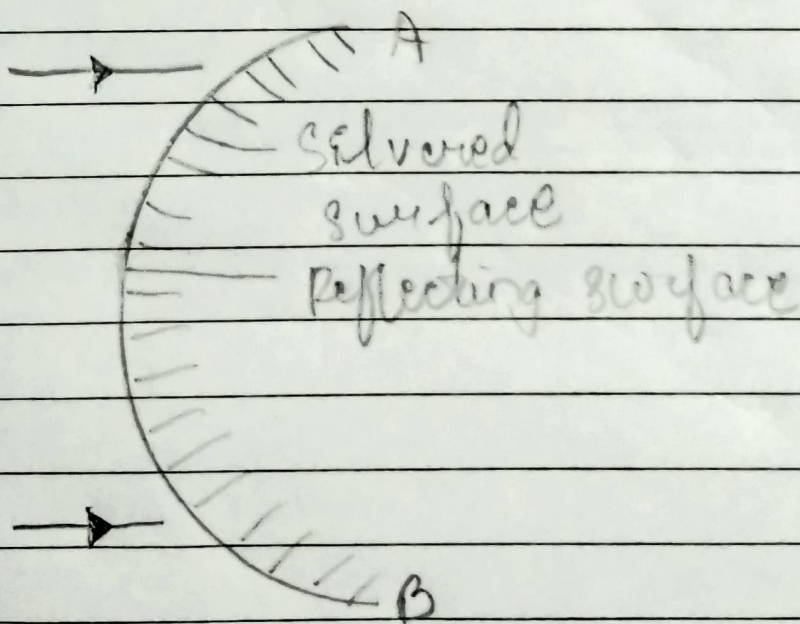 A
Silvered
surface
Reflecting surface
B